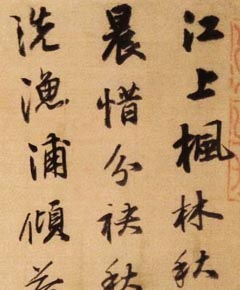 江上楓林秋
晨惜分袂秋
洗漁浦傾